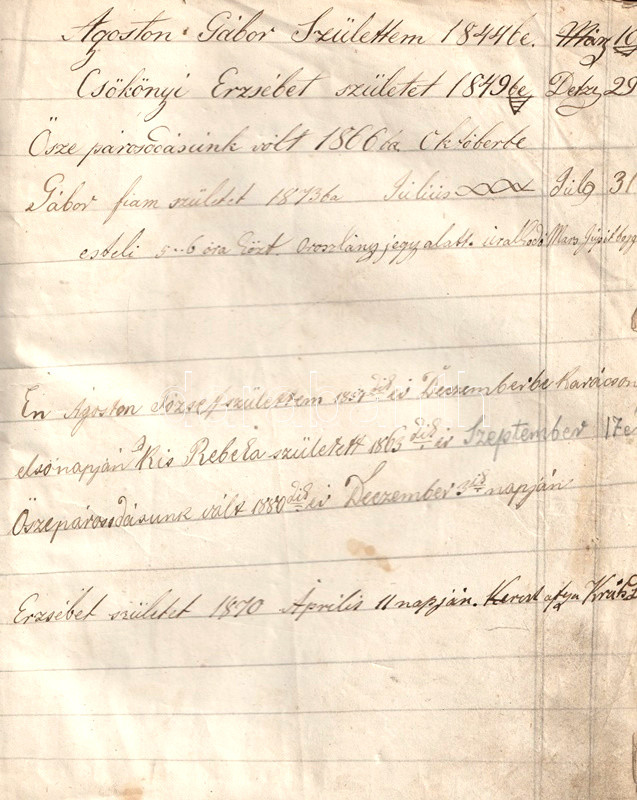 Ágoston Gábor Születtem 1844be. Márz 10
Csökönyi Erzsébet születet 1849be Detze 29
Ösze párosodásunk vólt 1866ba Októberbe
Gábor fiam születet 1873ba Július Júli 31
esteli 5-6 óra közt. oroszlány jegy alatt. uralkodó Mars Jupit
Én Ágoston József születtem 1857dik év Deczemberbe Karácson
elsö napján Kis Rebeka születet 1863dik év Szeptember 17e
Öszepárosodásunk vált 1880dik év Deczember 3dik napján
Erzsébet született 1870 Április 11 napján. Kereszt atya